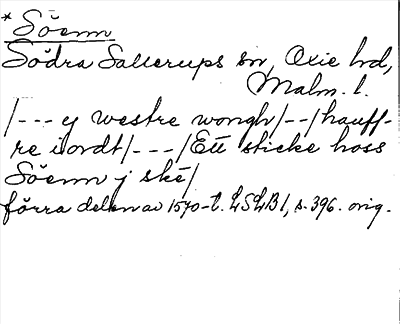 * Söenn
Södra Sallerups sn, Oxie hd,
Malm. l.
/--- y westre wongh/--/hauff-
re iordt/---/Ett sticke hoss
Söenn j ské/
förra delen av 1570-t. LSLB1, s. 396. orig.